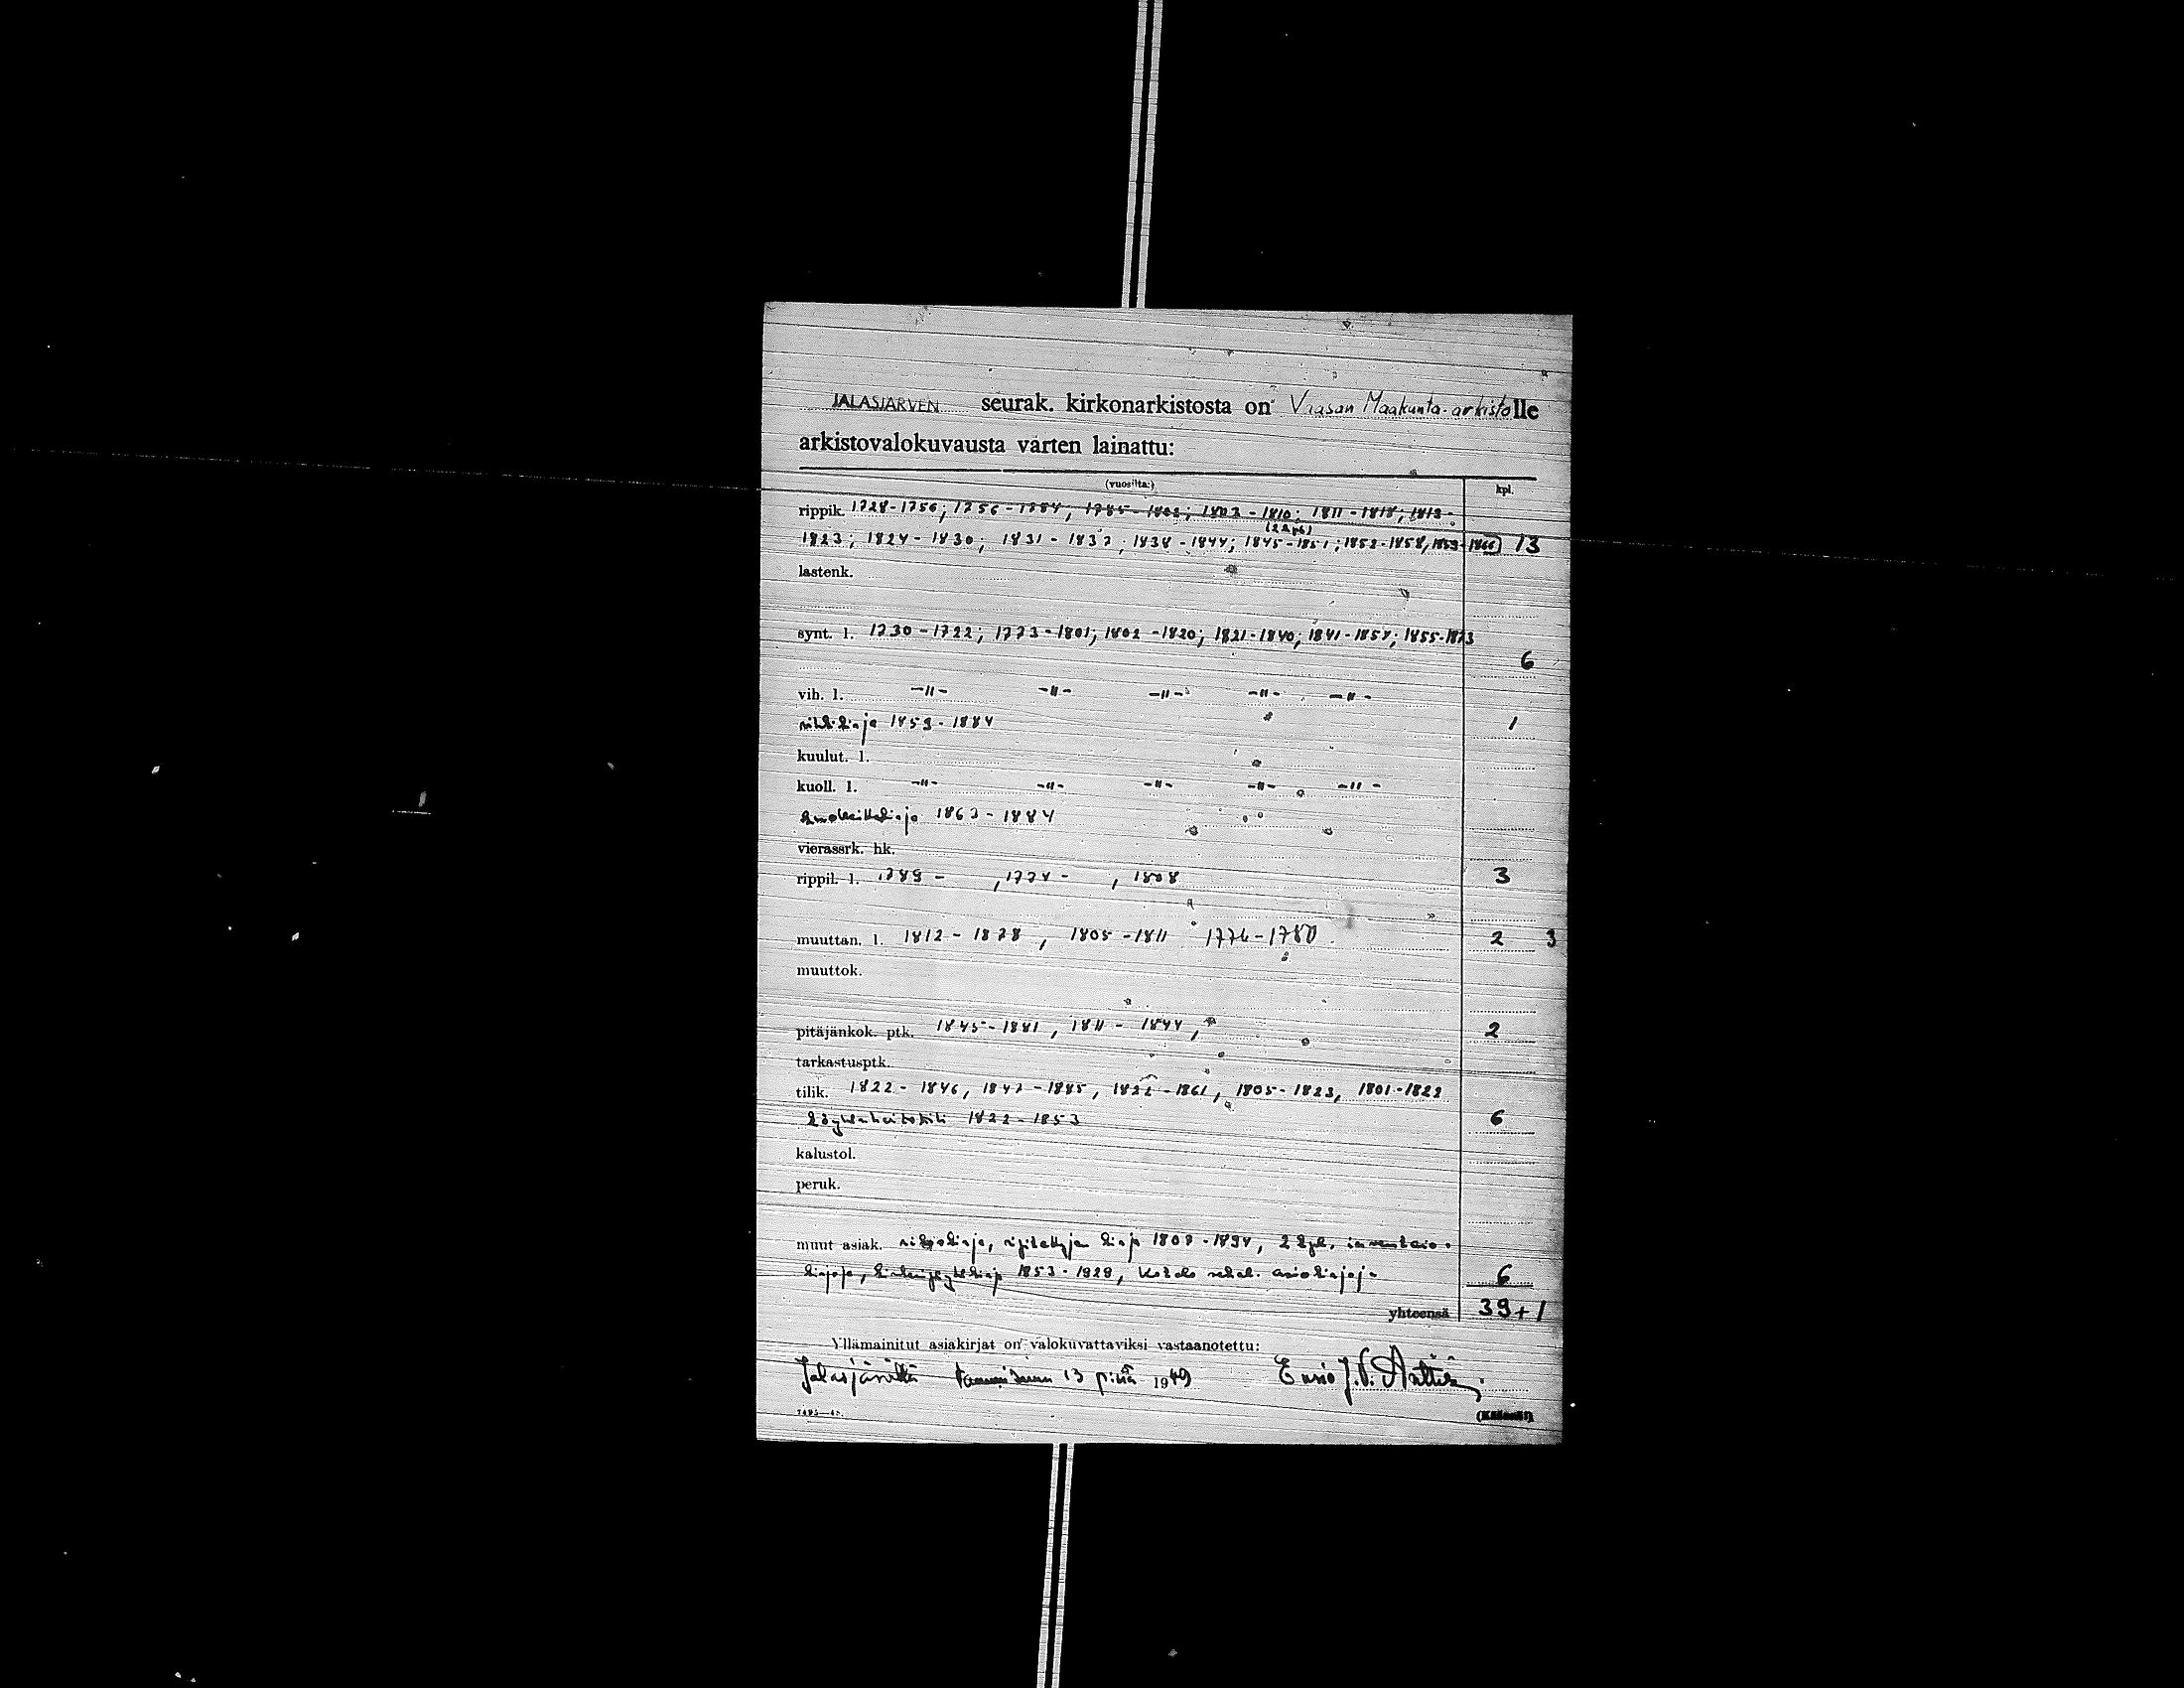 JALASJÄRVEN seurak. kirkonarkistosta on Vaasan Maakunta-arkistolle
arkistovalokuvausta varten lainattu:
(vuosilta:) kpl.
rippik. 1728-1756; 1756-1784; 1785-1802; 1803-1810; 1811-1818; 1818-
(2 kpl)
1823; 1824-1830; 1831-1837; 1838-1844; 1845-1851; 1852-1858, 1859-1866 13
lastenk.
synt. l. 1730-1722; 1773-1801; 1802-1820; 1821-1840; 1841-1854; 1855-1873
6
vih. l. -"- -"- -"- -"- -"-
vihkikirja 1859-1884 1
kuulut. l.
kuoll. l. -"- -"- -"- -"- -"-
1863-1884
vierassrk. hk.
rippil. l. 1789 - , 1774 - , 1808 3
muuttan. l. 1812-1878, 1805-1811 1776-1780 2 3
muuttok.
pitäjänkok. ptk. 1845-1881, 1811-1844, 2
tarkastusptk.
tilik. 1822-1846, 1847-1885, 1822-1861, 1805-1823, 1801-1822
1822-1853 6
kalustol.
peruk.
muut asiak. rikoskirja, kirja 1808-1894, 2 kpl.
1853-1929, asiakirjoja 6
yhteensä 39+1
Yllämainitut asiakirjat on valokuvattaviksi vastaanotettu:
Jalasjärvellä Tammikuun 13 p:nä 1949 Ensio J.V. Anttila